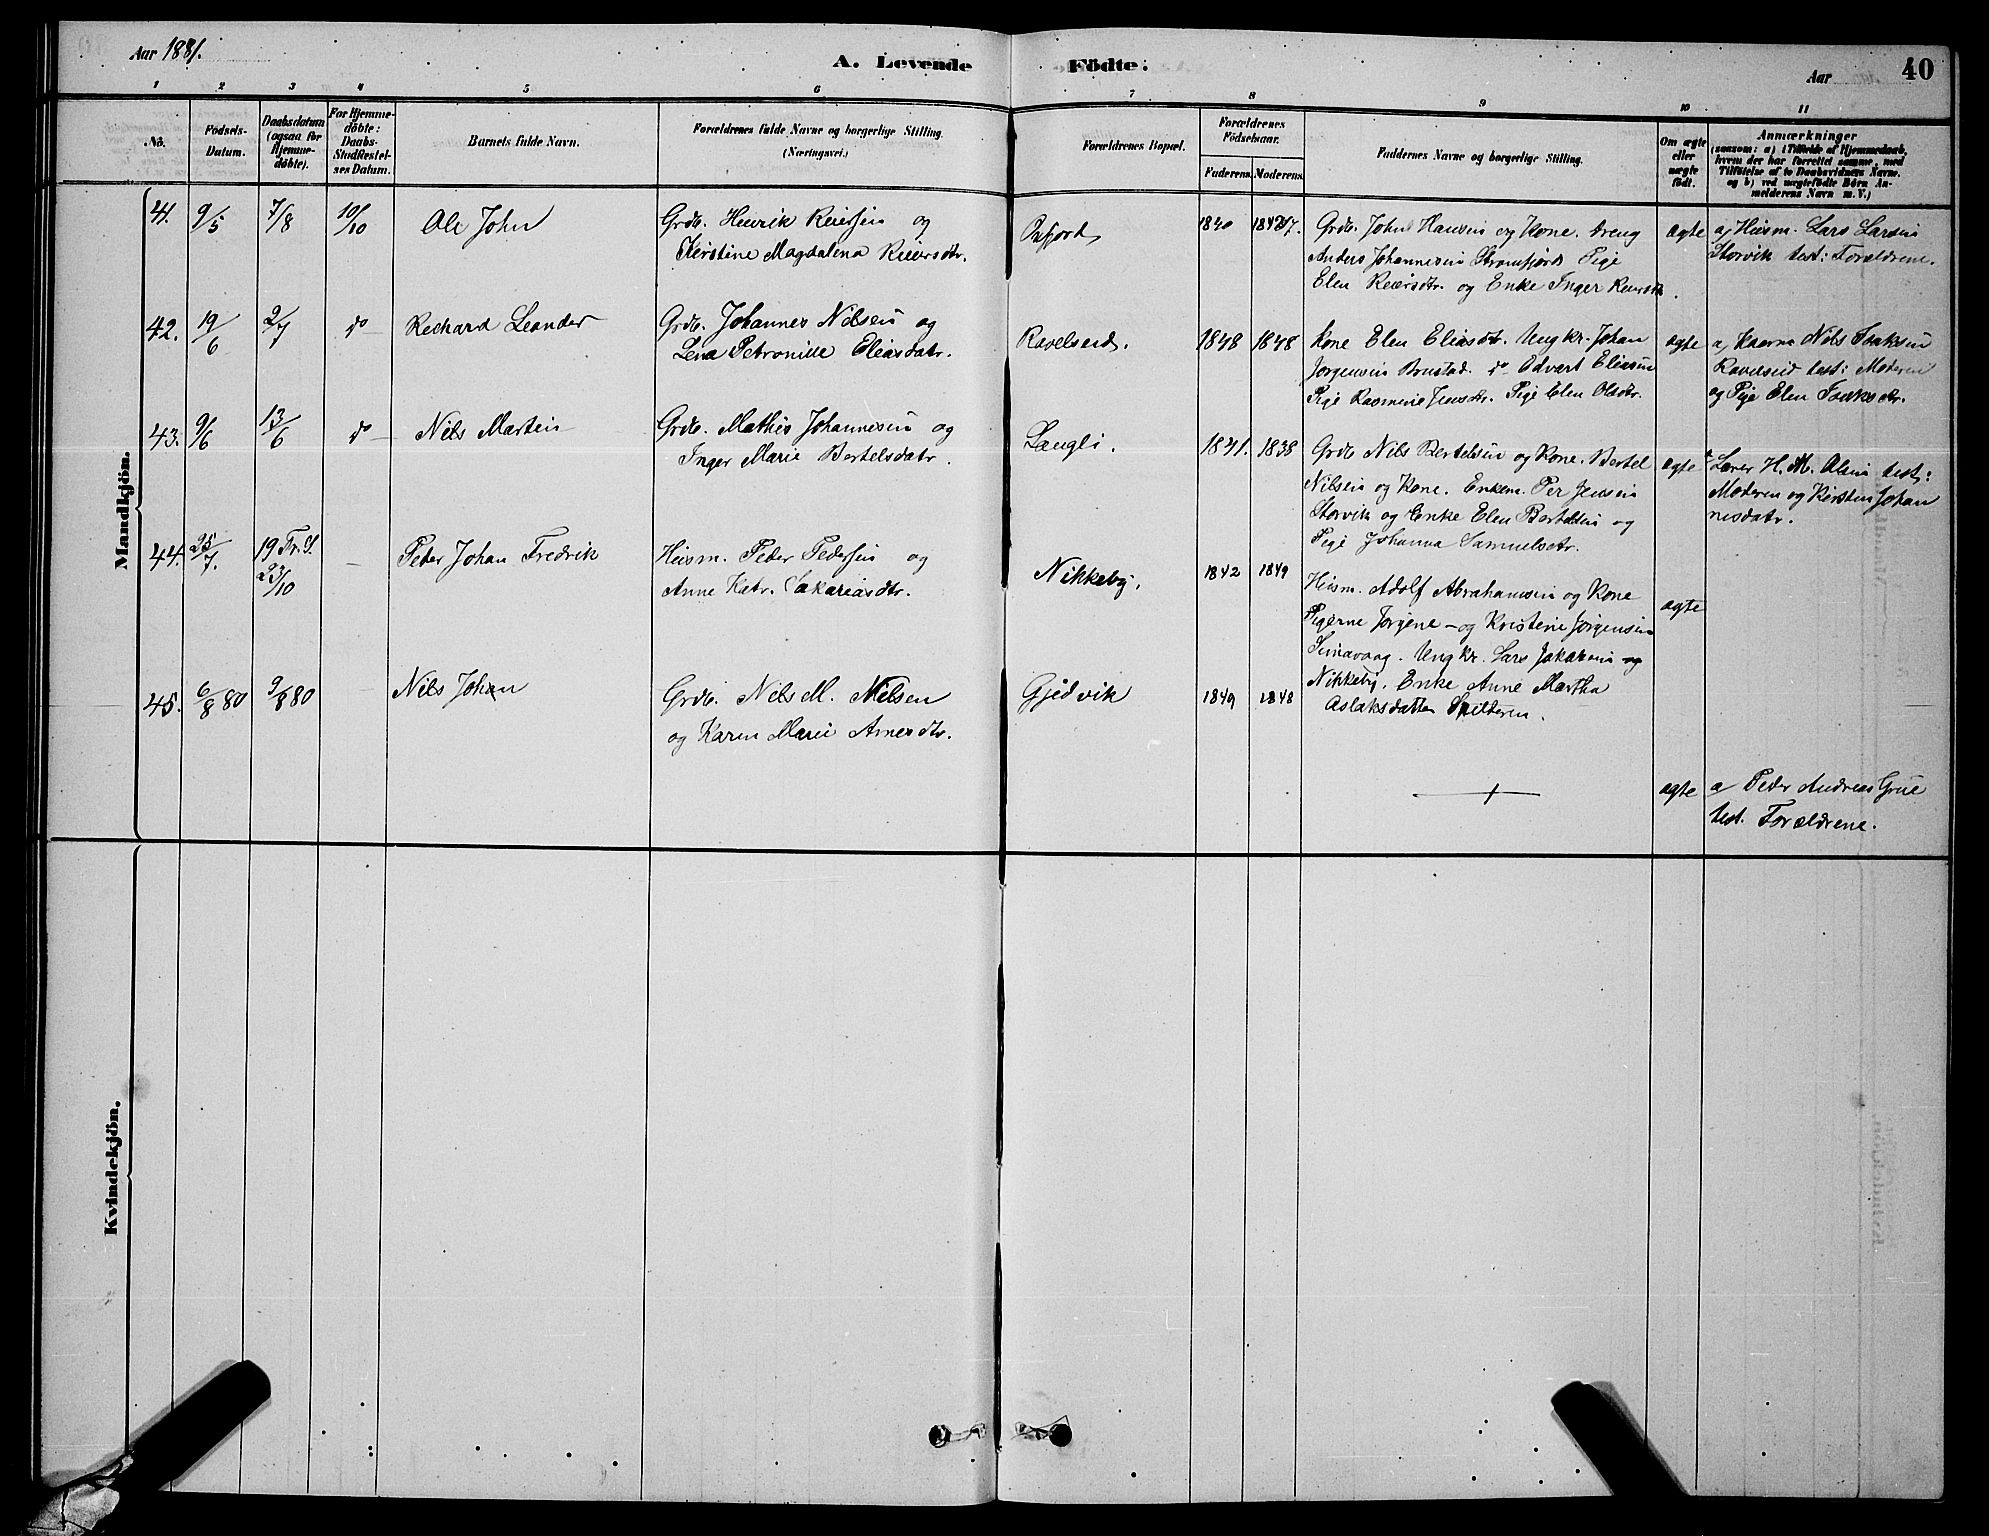 Aar 1881.
A. Levende Födte.
Aar
40
1 2 3 4 5 6 7 8 9 10 11
No.
Födsels-
Datum.
Daabsdatum
(ogsaa for
Hjemme-
döbte).
For Hjemme-
döbte:
Daabs-
Stadfæstel-
ses Datum.
Barnets fulde Navn.
Forældrenes fulde Navne og borgerlige Stilling.
(Næringsvei.)
Forældrenes Bopæl.
Forældrenes
Födselsaar.
Faderens. Moderens.
Faddernes Navne og borgerlige Stilling.
Om ægte
eller
uægte
födt.
Anmærkninger
(saasom: a) i Tilfælde af Hjemmedaab,
hvem der har forrettet samme, med
Tilföielse af to Daabsvidners Navne,
og b) ved uægtefödte Börn An-
melderens Navn m. V.)
Mandkjön.
41. 9/5 7/8 10/10 Ole John
Grdb. Henrik Reiersen og
Kerstine Magdalena Reiersdtr.
1840
Grdb. John Hansen og Kone. Dreng
Anders Johannesen Straumfjord Pige
Elen Reiersdtr. og Enke Inger Reiersdtr.
ægte
a, Husm. Lars Larsen
Storvik test: Forældrene.
42. 19/6 2/7 do Richard Leander
Grdb. Johannes Nilsen og
Lena Petronille Eliasdatr.
Ravelseid. 1848 1848
Kone Elen Eliasdtr. Ungkr. Johan
Jørgensen Brustad. do Edvart Eliasen
Pige Rasmine Jensdtr. Pige Elen Olsdtr.
ægte
a, Nils Isaksen
Ravelseid test: Moderen
og Pige Elen Isaksdtr.
43. 9/6 13/6 do Nils Martin
Grdb. Mathis Johannesen og
Inger Marie Bertelsdatr.
Laugli. 1841. 1838
Grdb Nils Bertelsen og Kone. Bertel
Nilsen og Kone. Enkem. Per Jensen
Storvik og Enke Elen Bertelsen og
Pige Johanna Samuelsdtr.
ægte
Lærer H. M. Olsen test:
Moderen og Kirsten Johan
nesdatr.
44. 25/7. 19 Tr. S.
23/10
— Peder Johan Fredrik
Husm. Peder Pedersen og
Anne Katr. Sakariasdtr.
Nikkeby. 1842 1849
Husm. Adolf Abrahamsen og Kone
Pigerne Jørgine — og Kristine Jørgensen
Simavaag. Ungkr. Lars Jakobsen og
Nikkeby. Enke Anne Martha
Aslaksdatter Spilderen.
ægte
45. 6/8 80 9/8 80 — Nils Johan
Grdb. Nils M. Nilsen
og Karen Marie Arnesdtr.
Gjedvik 1849 1848
ægte
a Peder Andreas Grue
test. Forældrene.
Kvindekjön.